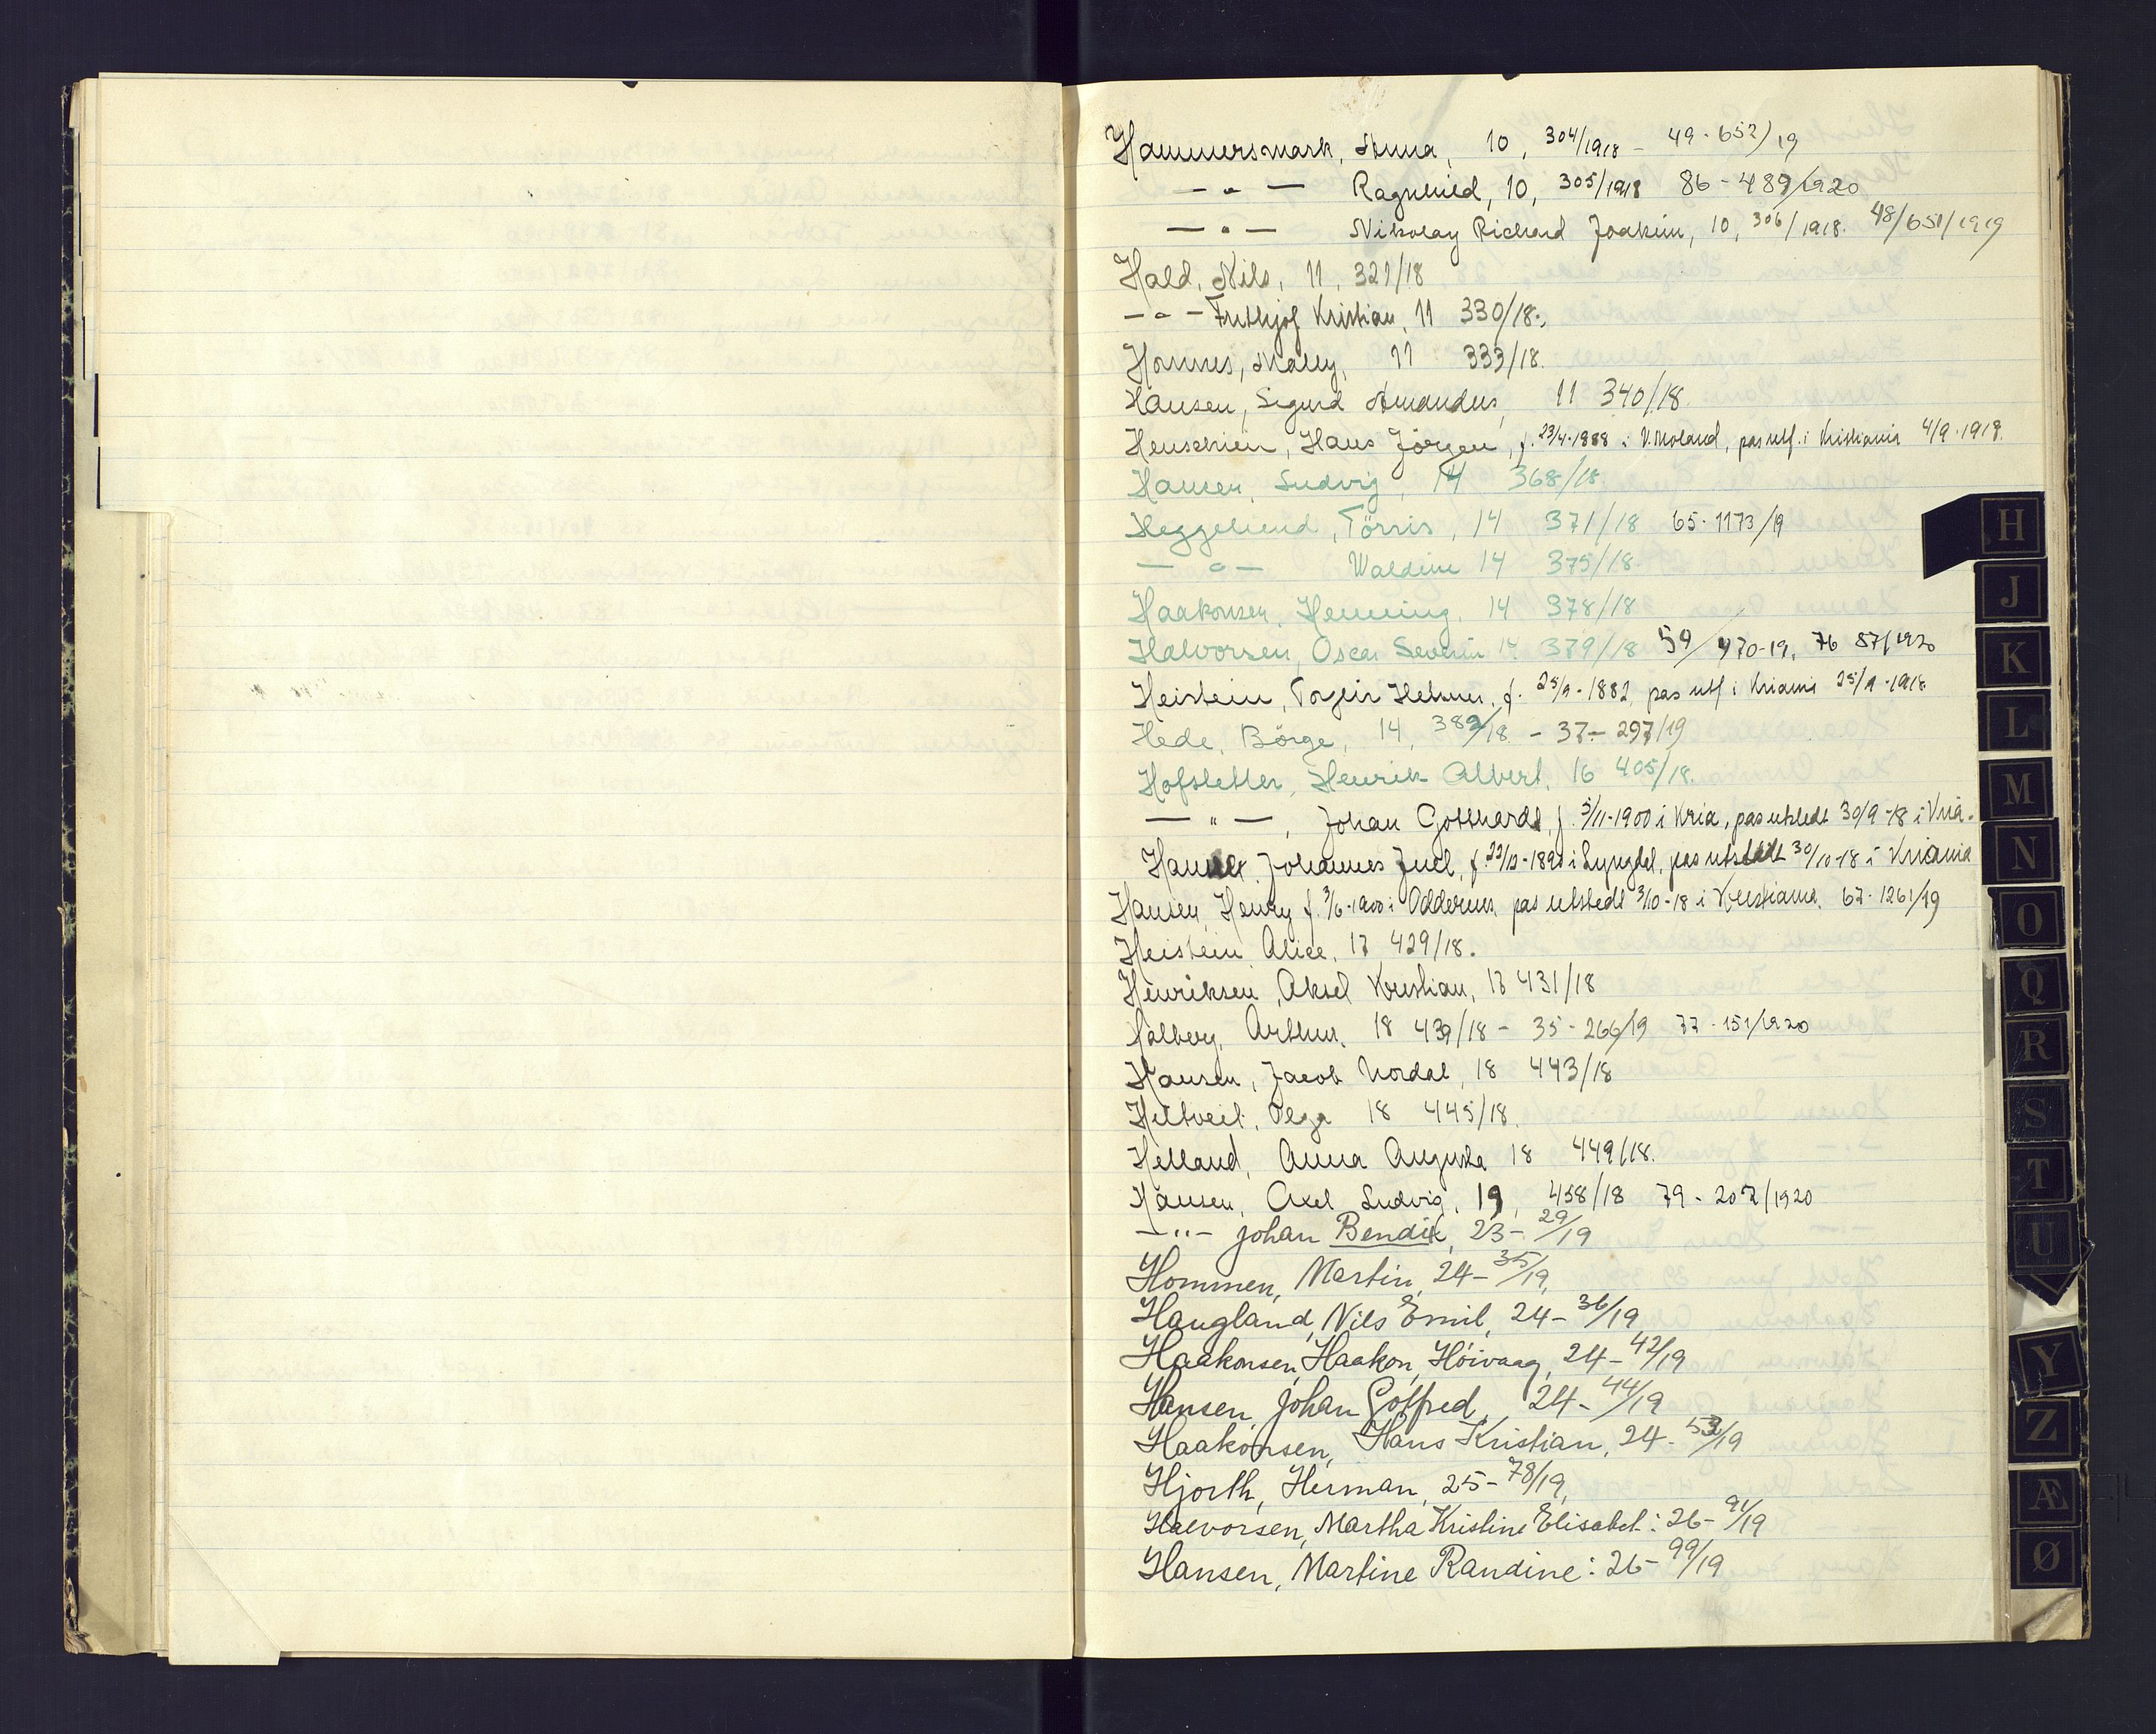 Hammersmark, Anna, 10, 304/1918 - 49-652/19
— " — Ragnhild, 10, 305/1918 86-489/1920
— " — Nikolay Richard Joakim, 10, 306/1918. 48/651/1919
Hald, Nils, 11, 321/18
— " — Frithjof Kristian, 11 330/18.
Hannes, Mally, 11 333/18.
Hansen, Sigurd Amandus, 11 340/18.
Henschien, Hans Jörgen, f. 23/4-1888 i V. Moland, pas utf. i Kristiania 4/9-1918.
Hansen, Ludvig, 14 368/18.
Heggelund, Törris, 14 371/18 65-1173/19
— " — Waldine 14 375/18.
Haakonsen, Henning, 14 378/18.
Halvorsen, Oscar Severin 14 379/18 59/470-19, 76 87/1920
Heistein, Torgeir Helmer, f. 25/9-1882, pas utf i Kriania 25/9-1918.
Hede, Börge, 14, 382/18 - 37-297/19
Hofstetter, Henrik Albert, 16 405/18.
— " —, Johan Gotthardt, f. 5/11-1900 i Kria, pas utstedt 30/9-18 i Kria.
Johannes Juel, f. 22/12-1890 i Lyngdal, pas utstedt 30/10-18 i Kriania
Hansen, Henry f. 3/6-1900 i Oddernes, pas utstedt 3/10-18 i Kristiania. 67-1261/19
Heistein Alice, 17 429/18.
Henriksen, Aksel Kristian, 17 431/18
Halberg, Arthur, 18 439/18 - 35-266/19 77-151/1920
Hansen, Jacob Nordal, 18 443/18
Heltveit, Olga 18 445/18.
Helland, Anna Augusta 18 449/18.
Hansen, Axel Ludvig, 19, 458/18 79-207/1920
— " — Johan Bendix, 23-29/19
Hommen, Martin, 24-35/19,
Haugland, Nils Emil, 24-36/19
Haakonsen, Haakon, Höivaag, 24-42/19
Hansen, Johan Gotfred, 24-44/19
Haakonsen, Hans Kristian, 24-53/19
Hjorth, Herman, 25-78/19,
Halvorsen, Martha Kristine Elisabet: 26-91/19
Hansen, Martine Randine: 26-99/19
H
J
K
L
M
N
O
Q
R
S
T
U
Y
Z
Æ
Ø